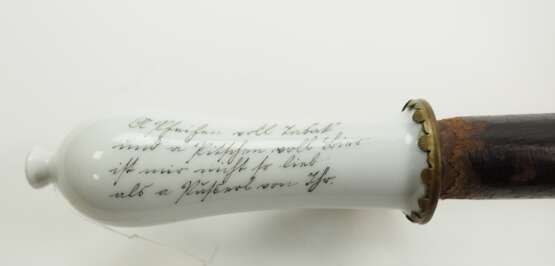 A Pfeifen voll Tabak
und a Pitschen voll Bier
ist mir nicht so lieb
als a Pusserl von Ihr.